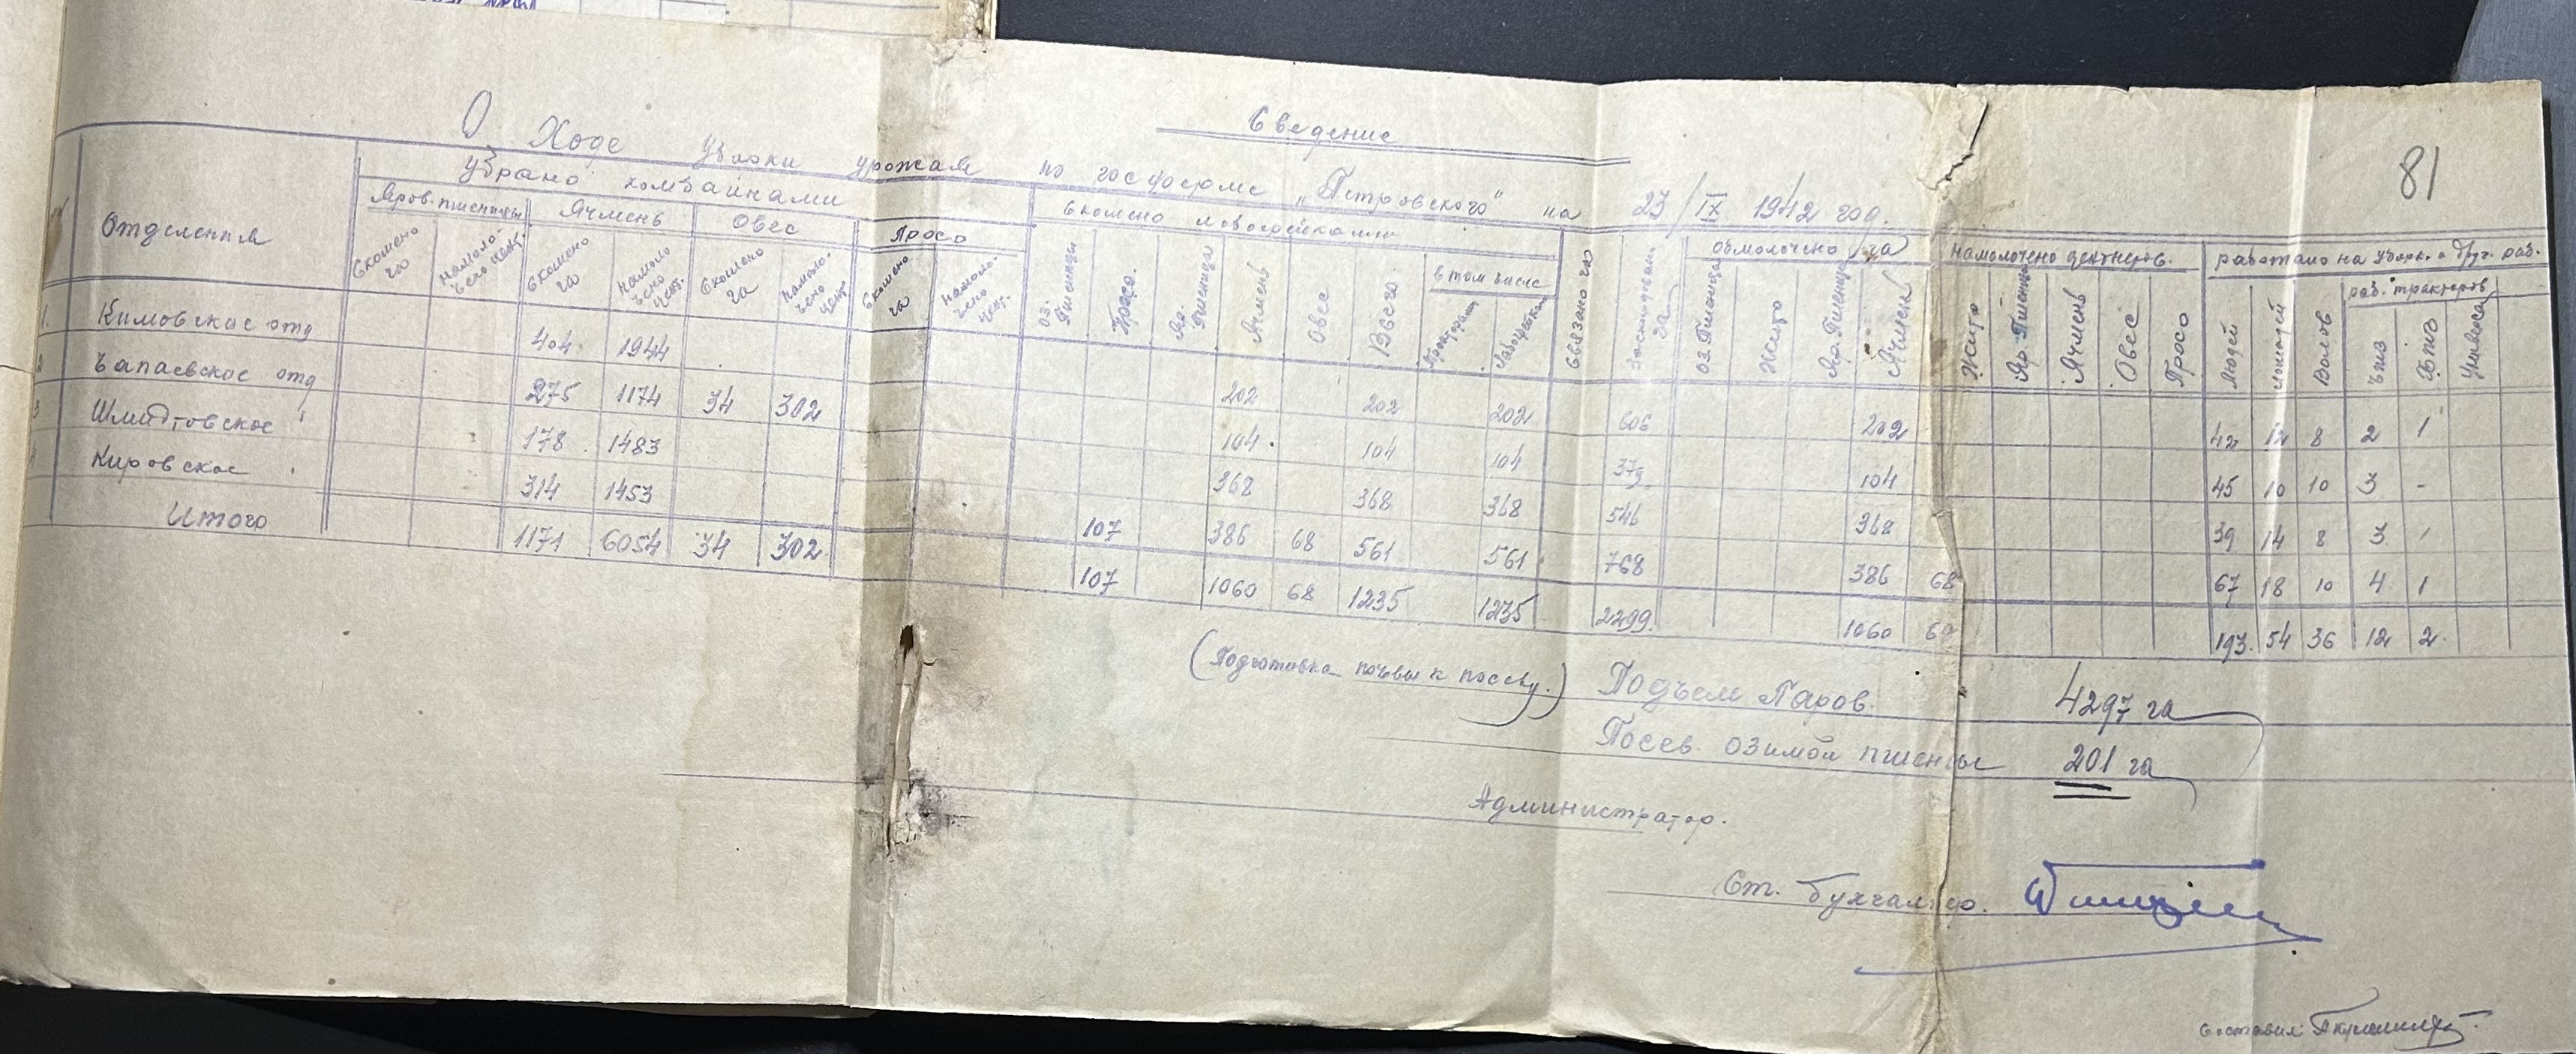 81
Сведение
О Ходе уборки урожая по госферме „Петровского" на 23/IX 1942 год.
Отделения
убрано комбайнами
Яров. пшеницы
Ячмень
Овес
Просо
Скошено га
Намолочено цент.
Скошено га
Намолочено цент.
Скошено га
Намолочено цент.
Скошено га
Намолочено цент.
Скошено лобогрейками
Оз. Пшеница
Просо
Яр. Пшеница
Ячмень
Овес
Всего
в том числе
Тракторами
Лобогрейки
Связано га
Заскирдован. га
обмолочено га
Оз. Пшеница
Жито
Яр. Пшеница
Ячмень
намолочено центнеров.
Жито
Яр. Пшеница
Ячмень
Овес
Просо
работало на уборк. и друг. раб.
Людей
Лошадей
Волов
раб. тракторов
ЧТЗ
ХТЗ
Универсал
1. Кимовское отд 404 1944 202 202 202 606 202 42 12 8 2 1
2 Чапаевское отд 275 1174 34 302 104 104 104 379 104 45 10 10 3 -
3 Шмидтовское " 178 1483 368 368 368 546 368 39 14 8 3 1
4 Кировское " 314 1453 107 386 68 561 561 768 386 68 67 18 10 4 1
Итого 1171 6054 34 302 107 1060 68 1235 1235 2299 1060 68 193 54 36 12 2
(Подготовка почвы к посеву.) Подъем Паров 4297 га
Посев озимой пшеницы 201 га
Администратор.
Ст. бухгалтер.
Составил: